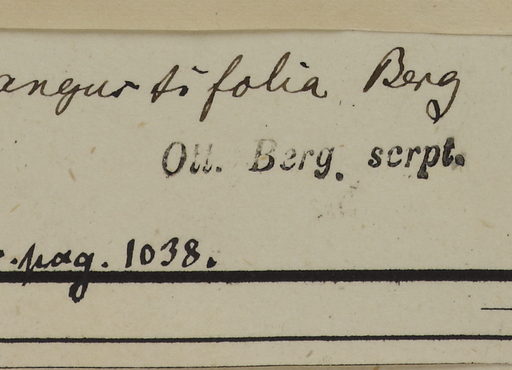 angustifolia Berg
Ott. Berg. scrpt.
pag. 1038.